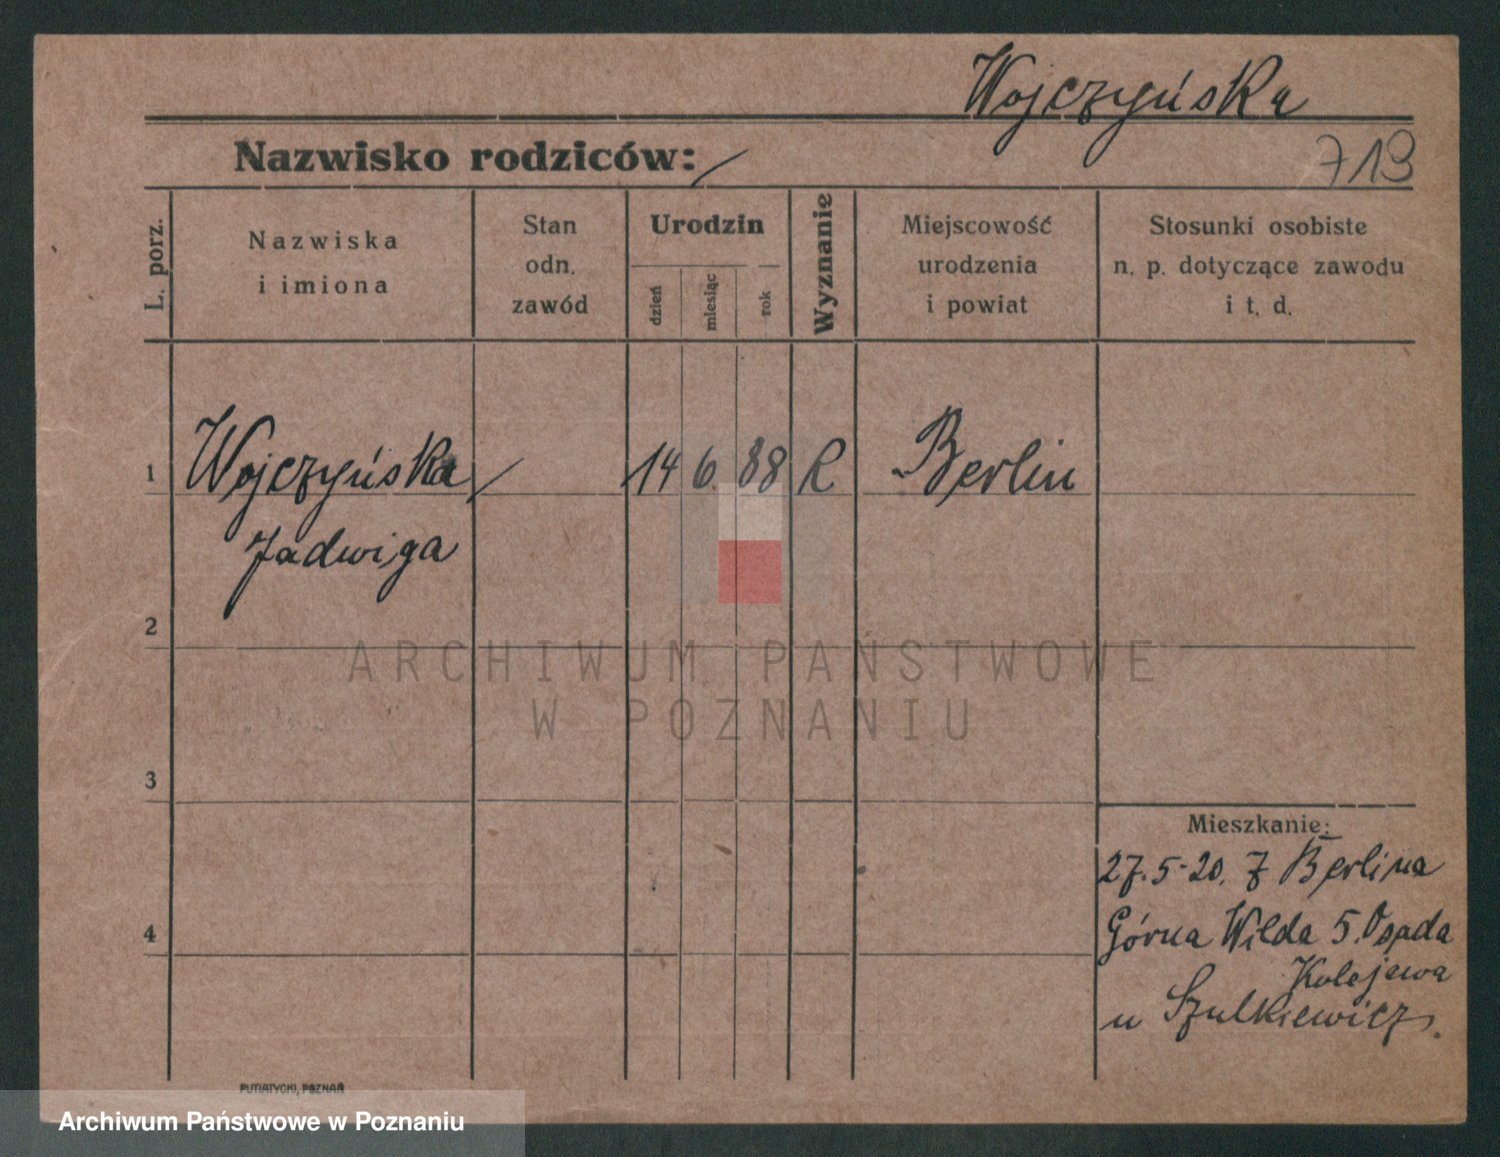 Wojczyńska
719
Nazwisko rodziców: /
L. porz.
Nazwiska
i imiona
Stan
odn.
zawód
Urodzin
dzień
miesiąc
rok
Wyznanie
Miejscowość
urodzenia
i powiat
Stosunki osobiste
n. p. dotyczące zawodu
i t. d.
1 Wojczyńska / 14 6. 88 R Berlin
Jadwiga
2
ARCHIWUM PAŃSTWOWE
W POZNANIU
3
Mieszkanie:
27.5-20. Z Berlina
4
Górna Wilda 5. Osada
Kolejowa
u Szulkiewicz.
PUTIATYCKI, POZNAŃ
Archiwum Państwowe w Poznaniu